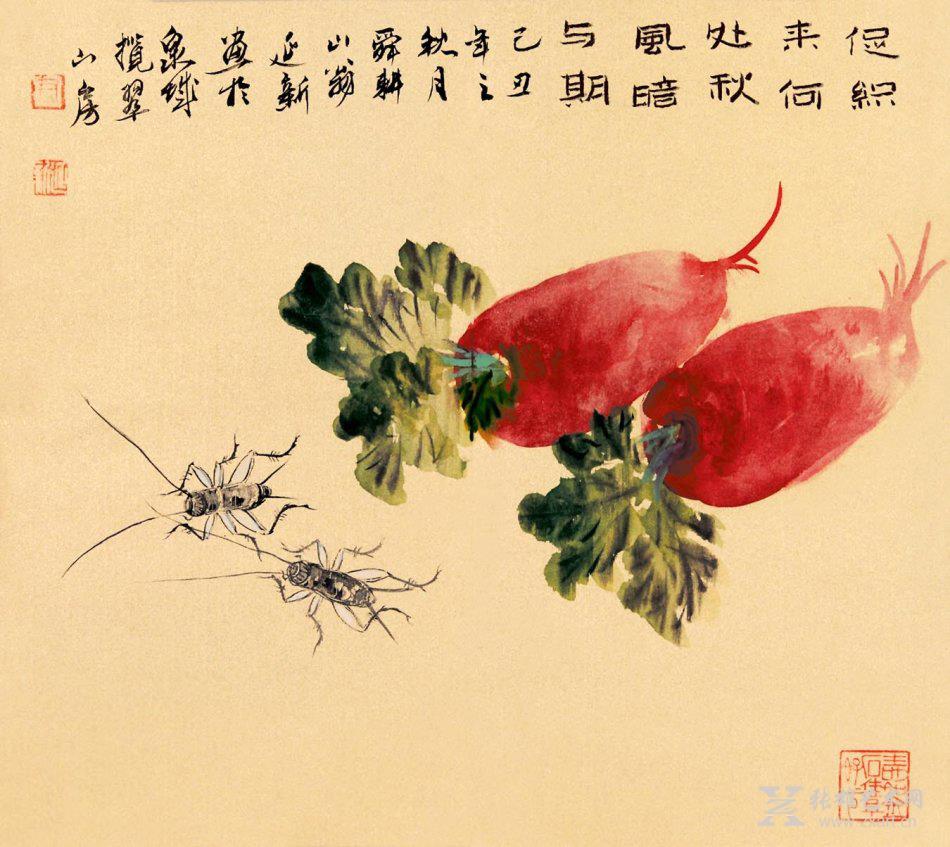 促织
来何
处秋
風暗
与期
己丑
年之
秋月
舜耕
山翁
延新
畫於
泉城
攬翠
山房
张雄艺术网
www.zxart.cn